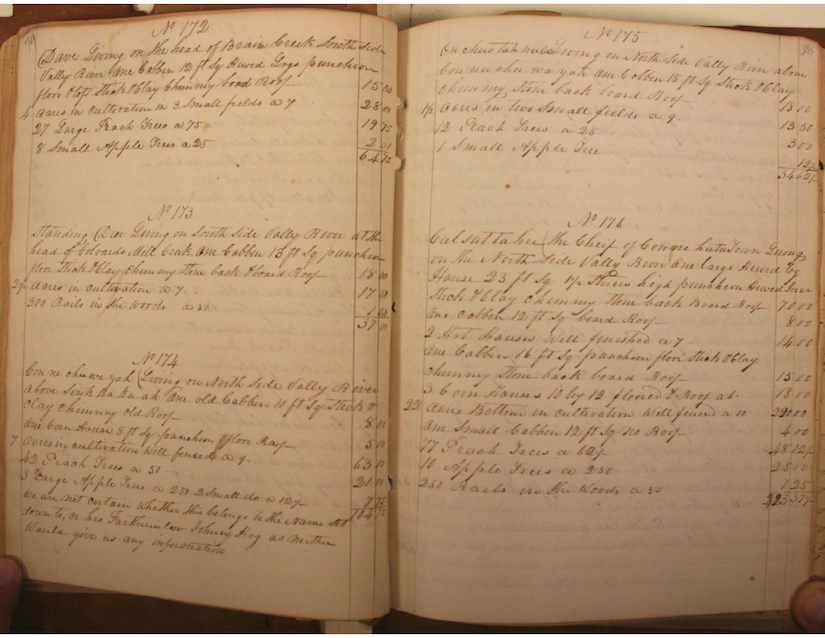 79
No 172
Dave Living on the head of Brains Creek South side
Vally River One Cabben 12 ft Sq Hewed Logs puncheon
floor & loft Stick & Clay Chimmy board Roof 15 00
4 Acres in cultivation in 3 Small fields a 7 28 00
27 Large Peach Trees a 75 19 75
8 Small Apple Trees a 25 2 00
64 75
No 173
Standing Living on South Side Vally River at the
head of Mill Creak One Cabben 13 ft Sq puncheon
floor Stick & Clay Chimmy Stone back & board Roof 18 00
2½ Acres in cultivation a 7 17 50
300 Rails in the Woods a 50 1 50
37 00
No 174
Con ne chu wa yah Living on North Side Vally River
above One old Cabben 10 ft Sq Stick &
Clay Chimmy old Roof 8 00
One Corn House 8 ft Sq puncheon floor Roof 5 00
7 Acres in cultivation Well fensed a 9 63 00
42 Peach Trees a 50 21 00
3 Large Apple Trees a 250 2 Small do a 12½ 7 75
We are not certain whether this belongs to the Name Set 104 75
down to, or his Fartherinlaw Johnny Hog as neither
Would give us any information
80
No 175
Living on North Side Vally River above
Con ne chu wa yah One Cabben 15 ft Sq Stick & Clay
Chimmy Stone back board Roof 18 00
1½ Acres in two Small fields a 9 13 50
12 Peach Trees a 25 3 00
1 Small Apple Tree 12½
34 62½
No 176
the Chief of Town Living
on the North Side Vally River One large Hewed Log
House 23 ft Sq 1½ Stories high puncheon Hewed
Stick & Clay Chimmy Stone back Board Roof 70 00
One Cabben 12 ft Sq board Roof 8 00
2 Hot Houses Well finished a 7 14 00
One Cabben 16 ft Sq puncheon floor Stick & Clay
Chimmy Stone back board Roof 15 00
3 Corn Houses 10 by 12 floored & Roof a 6 18 00
22 Acres Bottom in cultivation Well fenced a 10 220 00
One Small Cabben 12 ft Sq no Roof 4 00
77 Peach Trees a 62½ 48 12½
10 Apple Trees a 250 25 00
250 Rails in the Woods a 50 1 25
423 37½